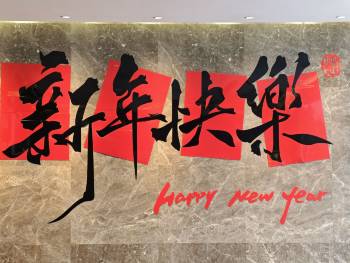 新年快樂
Happy New Year